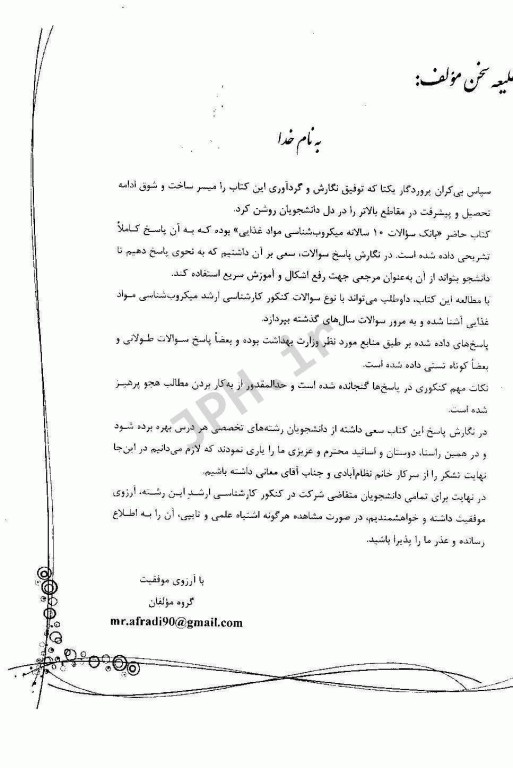 طلیعه سخن مؤلف:
به نام خدا
سپاس بی‌کران پروردگار یکتا که توفیق نگارش و گردآوری این کتاب را میسر ساخت و شوق ادامه
تحصیل و پیشرفت در مقاطع بالاتر را در دل دانشجویان روشن کرد.
کتاب حاضر «بانک سؤالات ۱۰ سالانه میکروب‌شناسی مواد غذایی» بوده کـه بـه آن پاسـخ کـاملاً
تشریحی داده شده است. در نگارش پاسخ سوالات، سعی بر آن داشتیم که به نحوی پاسخ دهیم تا
دانشجو بتواند از آن به‌عنوان مرجعی جهت رفع اشکال و آموزش سریع استفاده کنـد.
با مطالعه این کتاب، داوطلب می‌تواند با نوع سوالات کنکور کارشناسی ارشد میکروب‌شناسی مـواد
غذایی آشنا شده و به مرور سوالات سال‌های گذشته بپردازد.
پاسخ‌های داده شده بر طبق منابع مورد نظر وزارت بهداشت بوده و بعضاً پاسخ سـوالات طـولانی و
بعضاً کوتاه تستی داده شده است.
نکات مهم کنکوری در پاسخ‌ها گنجانده شده است و حدالمقدور از به‌کار بردن مطالب هجو پرهیـز
شده است.
در نگارش پاسخ این کتاب سعی داشته از دانشجویان رشته‌های تخصصی هر درس بهره برده شـود
و در همین راستا، دوستان و اساتید محترم و عزیزی ما را یاری نمودند که لازم می‌دانیم در این‌جا
نهایت تشکر را از سرکار خانم نظام‌آبادی و جناب آقای معانی داشته باشیم.
در نهایت برای تمامی دانشجویان متقاضی شرکت در کنکور کارشناسـی ارشـد ایـن رشـته، آرزوی
موفقیت داشته و خواهشمندیم، در صورت مشاهده هرگونه اشتباه علمی و تایپی، آن را بـه اطـلاع
رسانده و عذر ما را پذیرا باشید.
با آرزوی موفقیت
گروه مؤلفان
mr.afradi90@gmail.com
JPH.ir